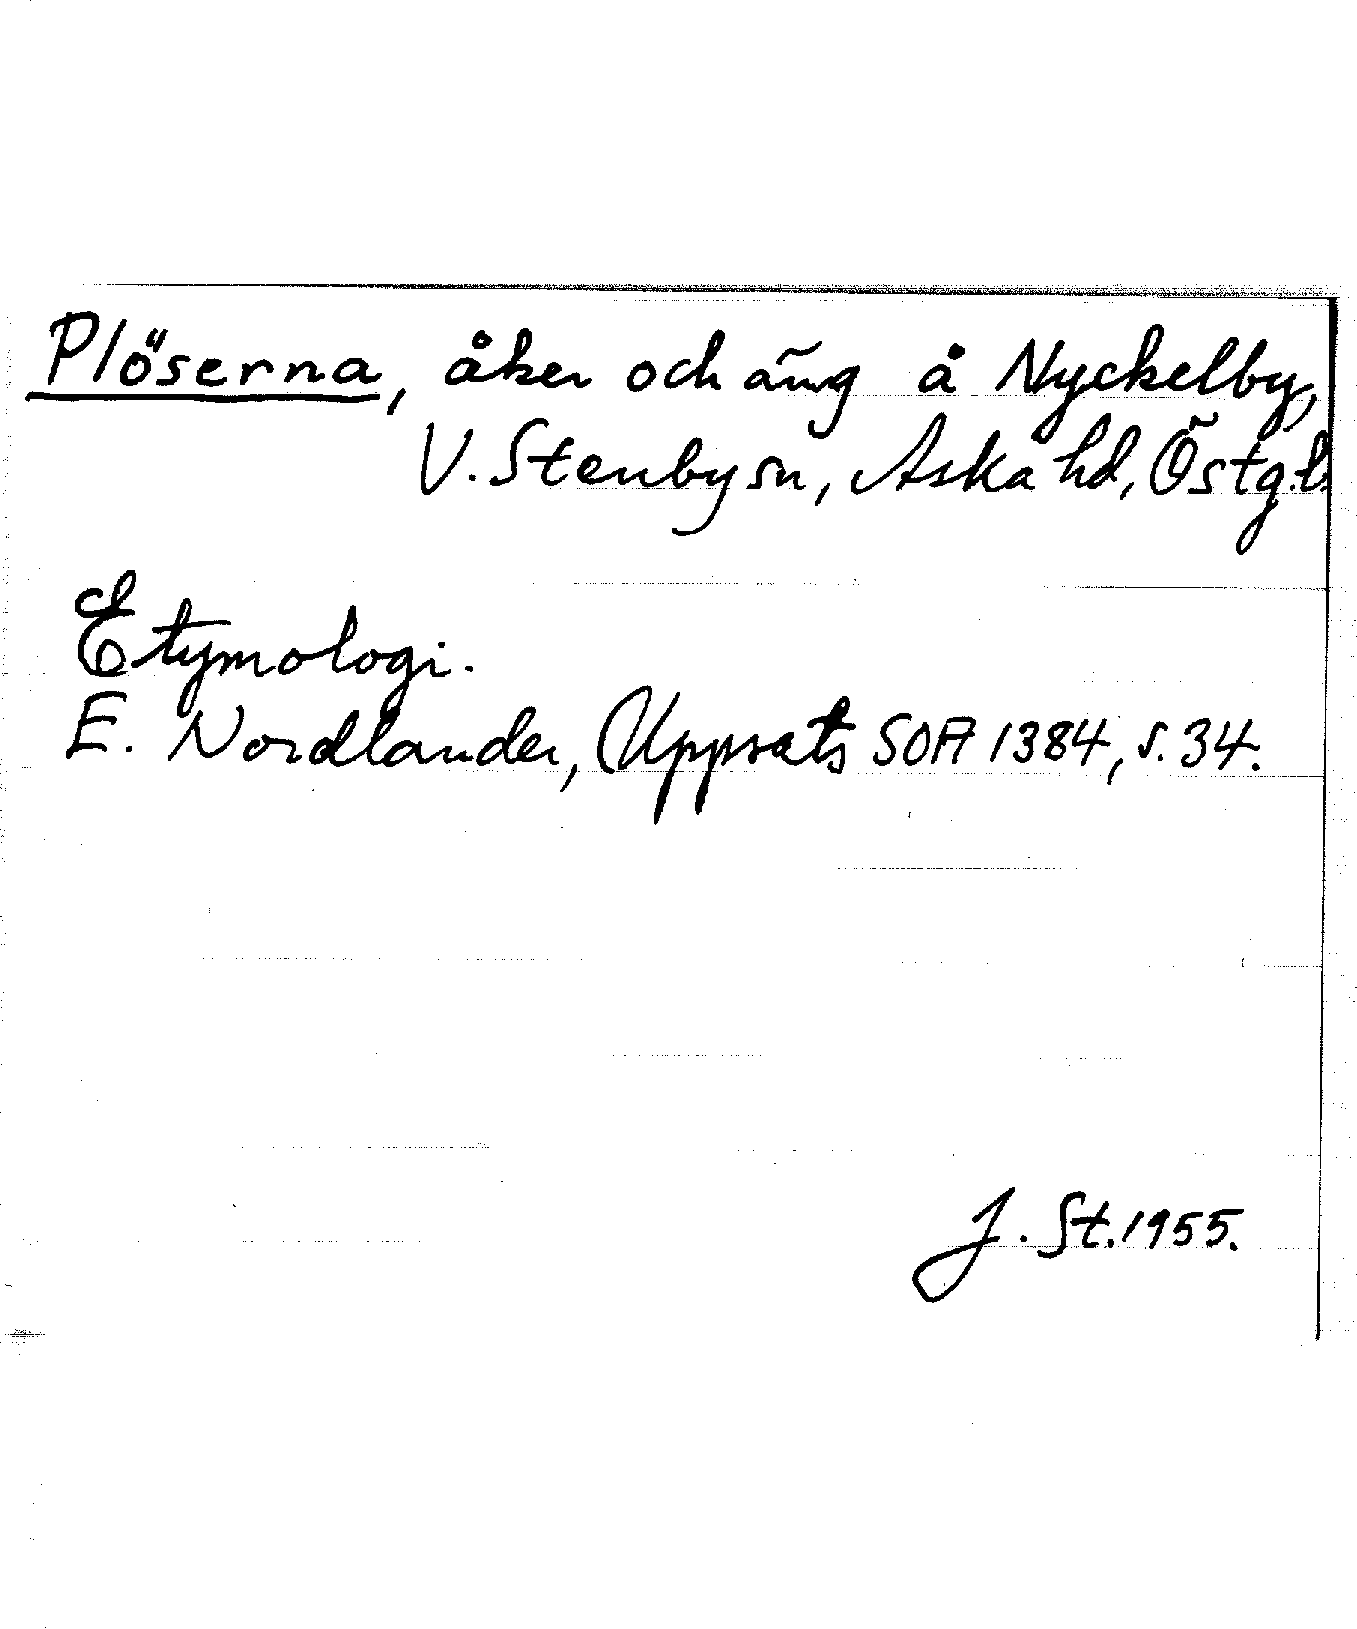 Plöserna, åker och äng å Nyckelby,
V. Stenby sn, Aska hd, Östg.l.
Etymologi.
E. Nordlander, Uppsats SOA 1384, s. 34.
J. St. 1955.